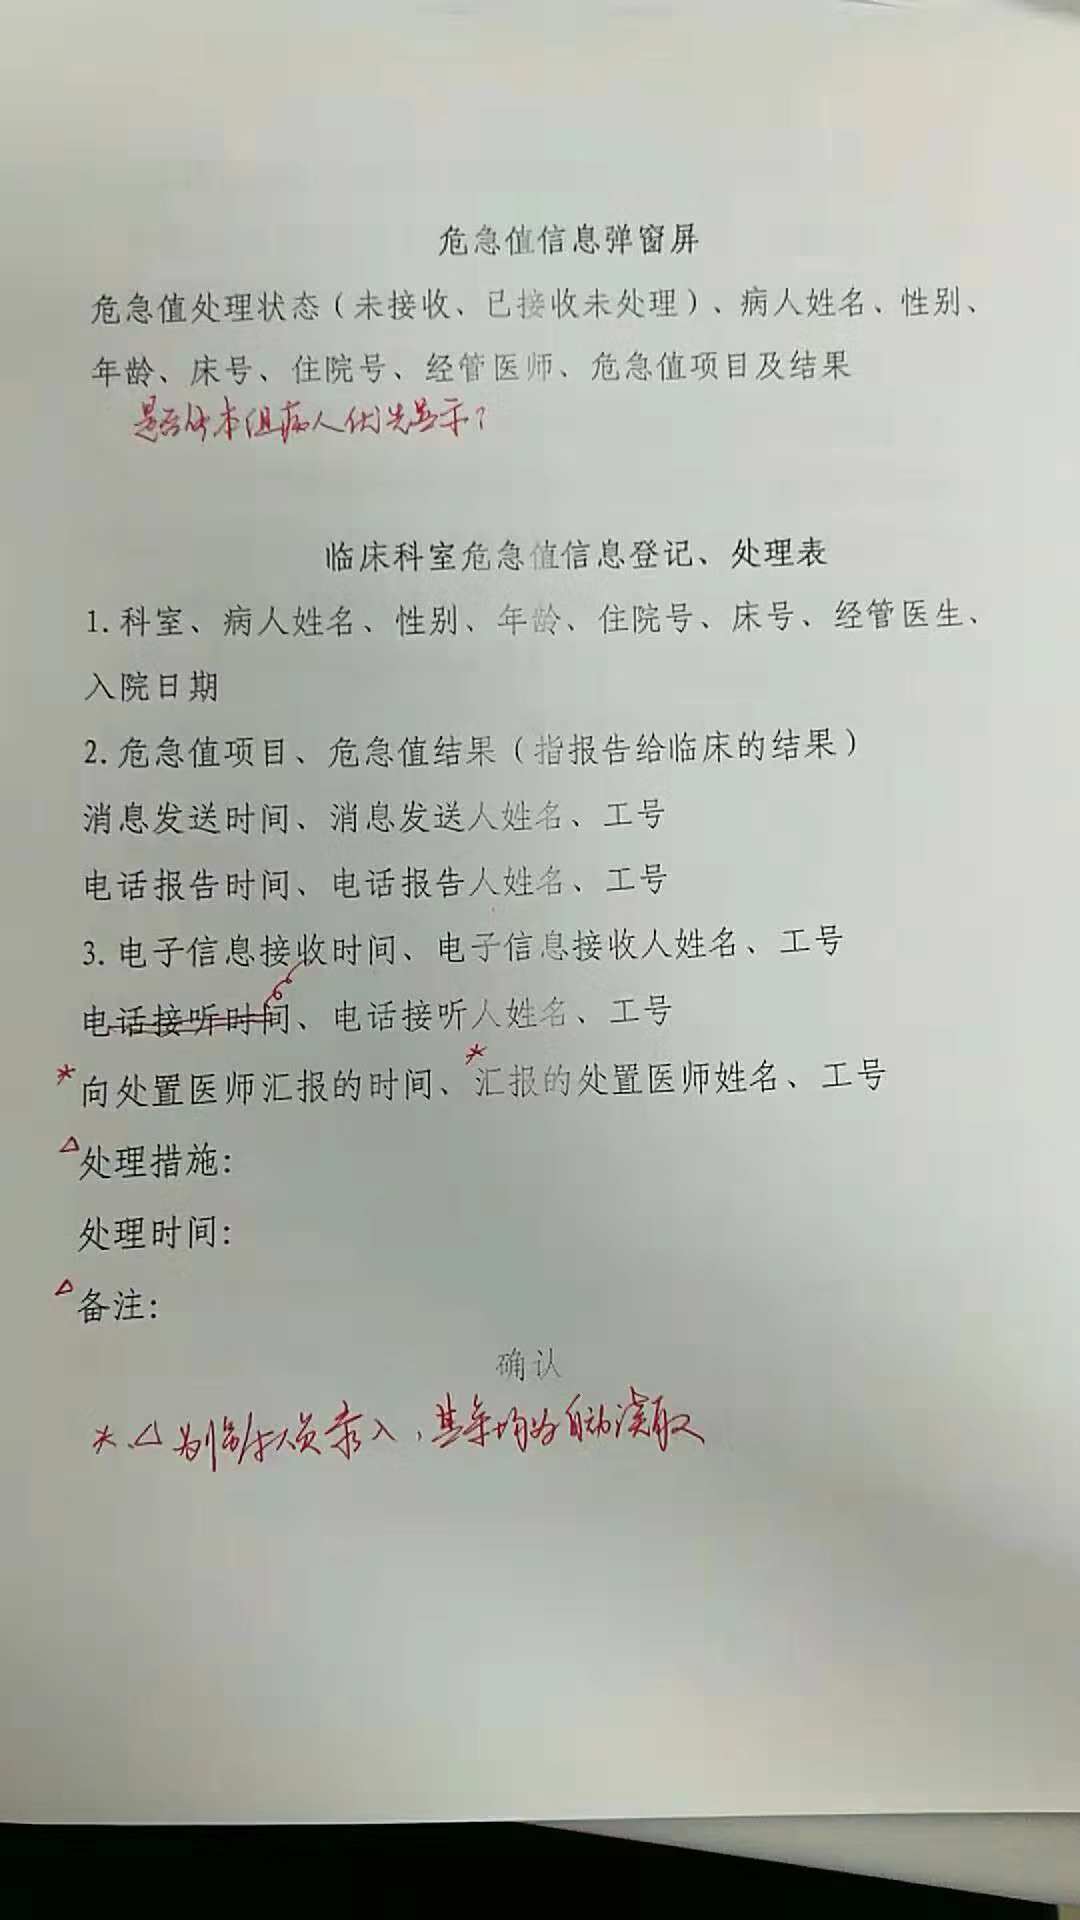 危急值信息弹窗屏
危急值处理状态（未接收、已接收未处理）、病人姓名、性别、
年龄、床号、住院号、经管医师、危急值项目及结果
是否使本组病人优先显示？
临床科室危急值信息登记、处理表
1. 科室、病人姓名、性别、年龄、住院号、床号、经管医生、
入院日期
2. 危急值项目、危急值结果（指报告给临床的结果）
消息发送时间、消息发送人姓名、工号
电话报告时间、电话报告人姓名、工号
3. 电子信息接收时间、电子信息接收人姓名、工号
电话接听时间、电话接听人姓名、工号
*向处置医师汇报的时间、*汇报的处置医师姓名、工号
△处理措施：
处理时间：
△备注：
确认
*、△为临床人员录入，其余均为自动读取